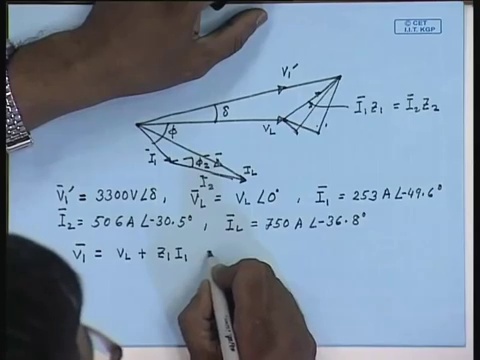 © CET
I.I.T. KGP
V̄₁'
δ
V_L
Ī₁Z₁ = Ī₂Z₂
φ
Ī₁
I_L
Ī₂
V̄₁' = 3300V∠δ, V̄_L = V_L∠0°, Ī₁ = 253 A∠-49.6°
Ī₂ = 506 A∠-30.5°, Ī_L = 750 A∠-36.8°
V̄₁ = V_L + Z₁I₁